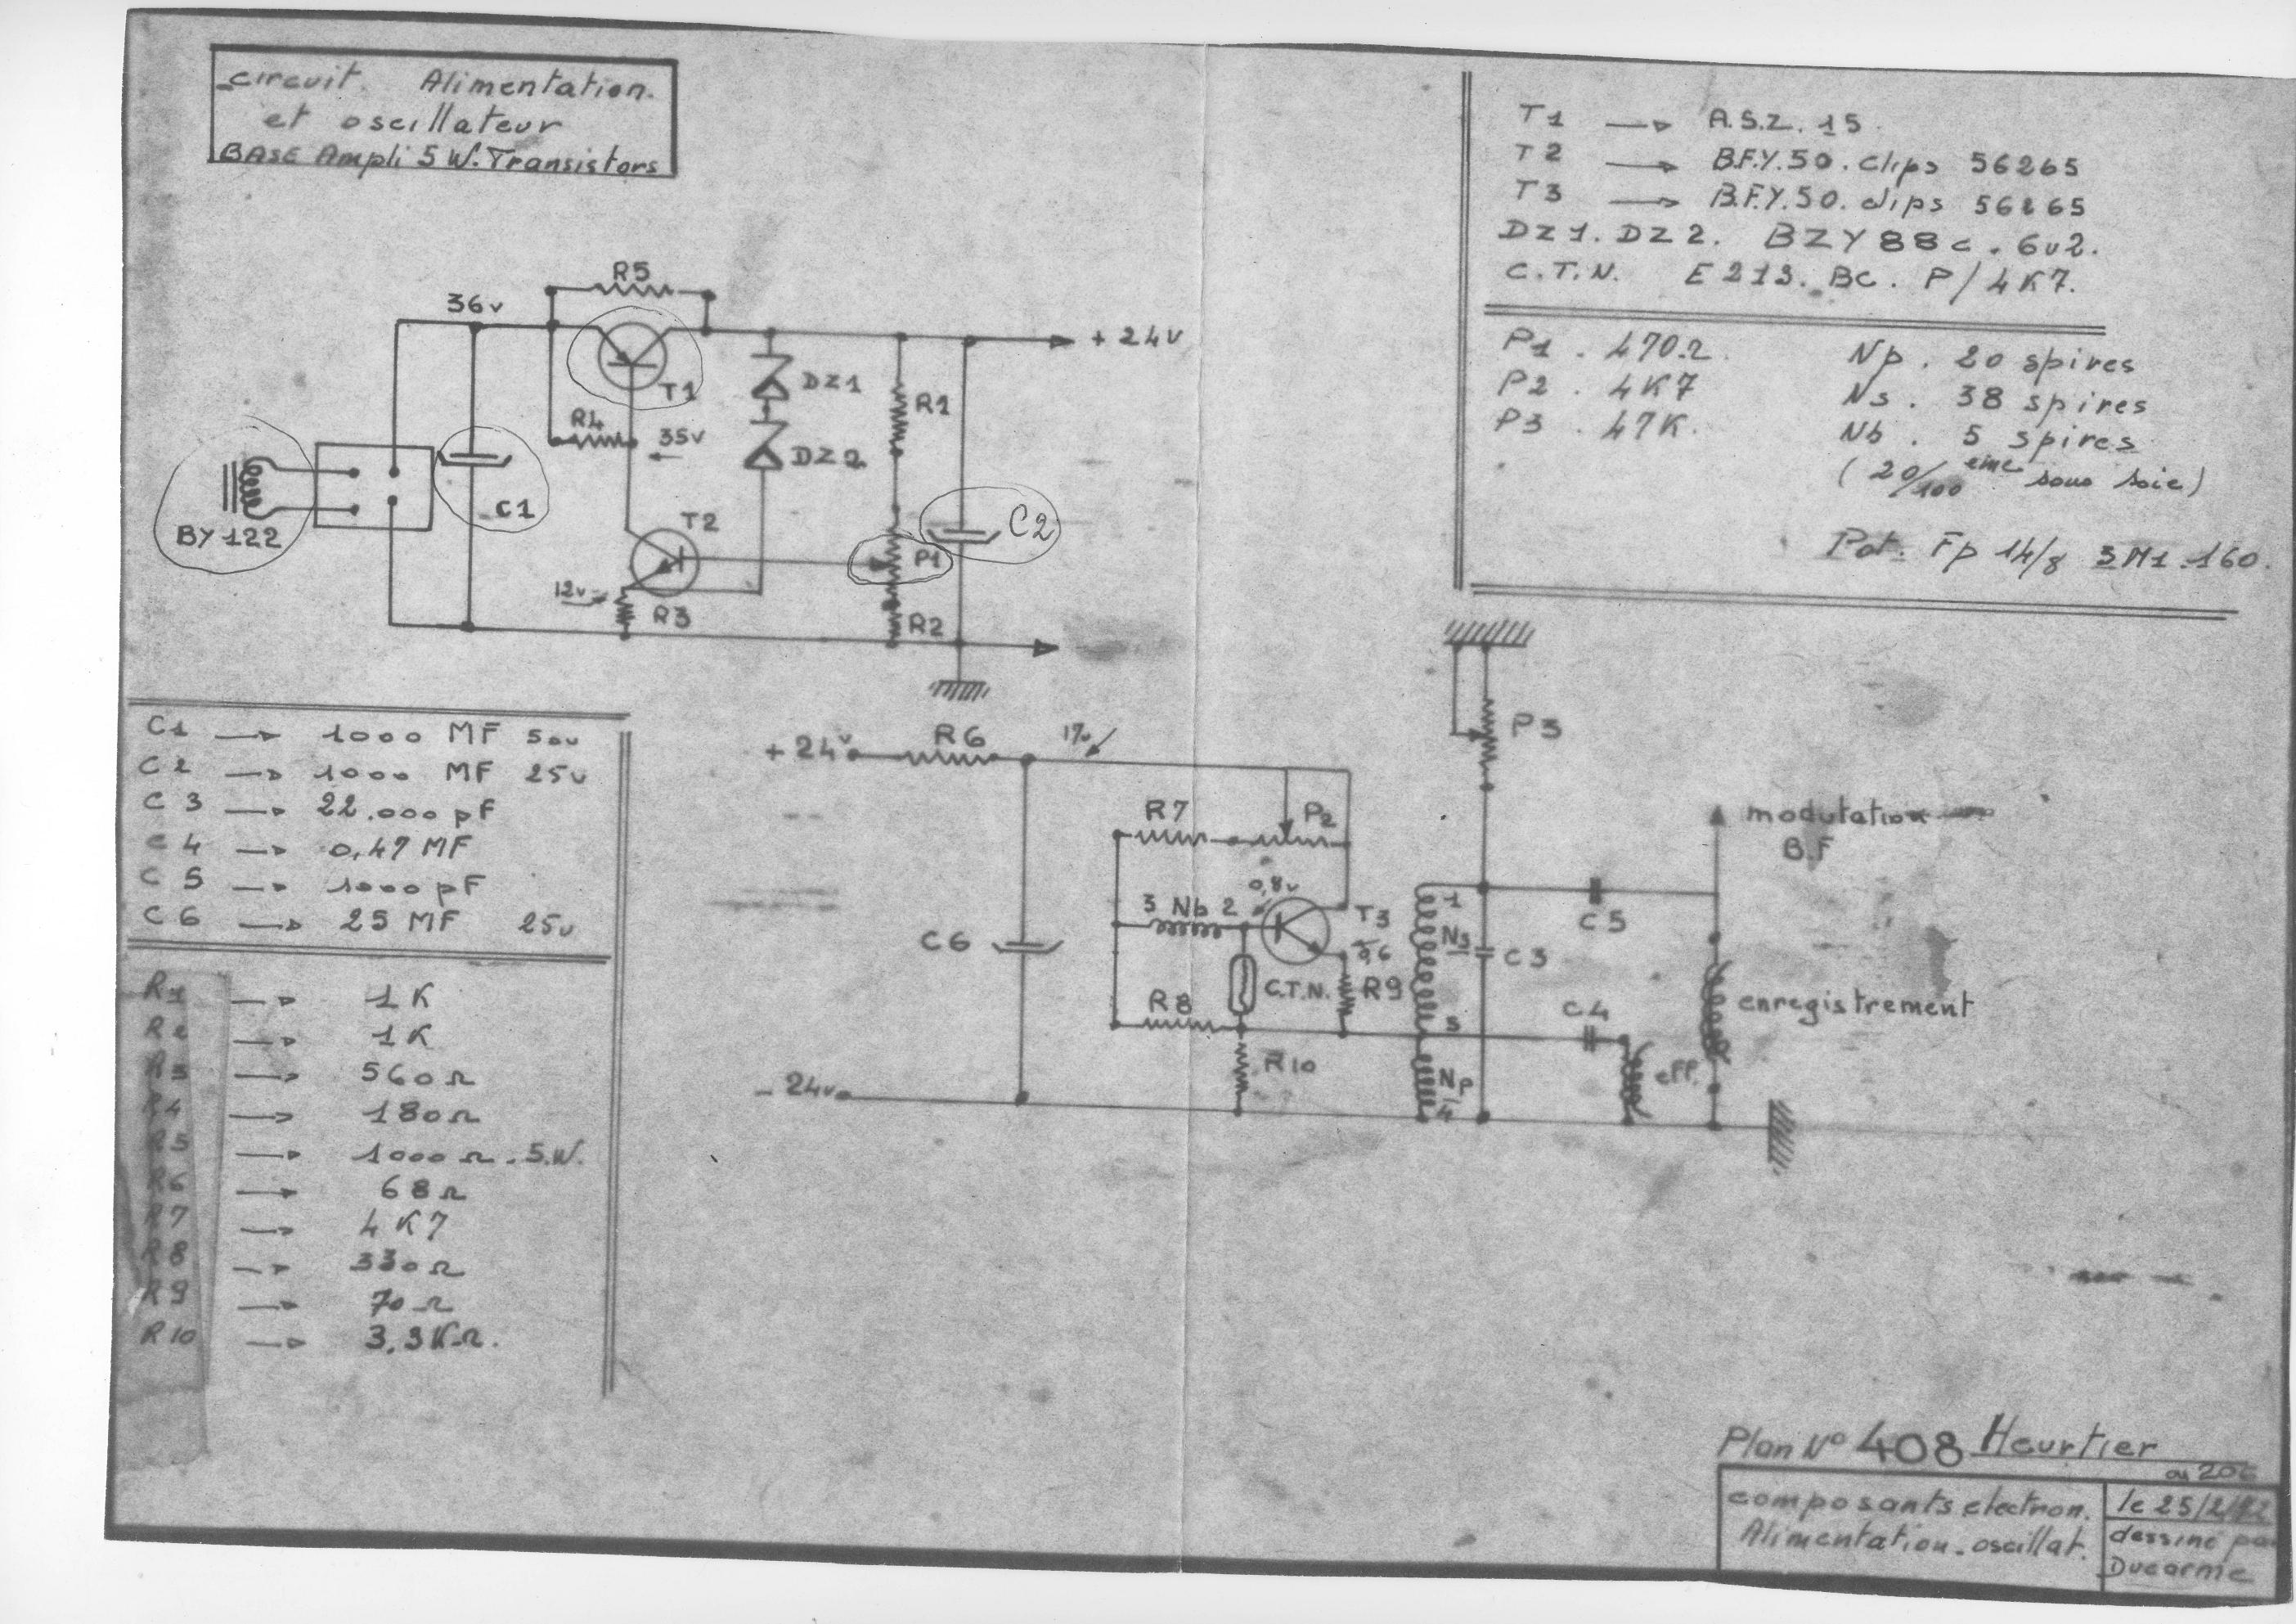 circuit. Alimentation.
et oscillateur
BASE Ampli 5 W. Transistors
T1 → A.S.Z. 15.
T2 → B.F.Y. 50. clips 56265
T3 → B.F.Y. 50. clips 56265
DZ1. DZ2. BZY88c. 6v2.
C.T.N. E213. BC. P/4K7.
P1. 470Ω.
P2. 4K7
P3. 47K.
Np. 20 spires
Ns. 38 spires
Nb. 5 spires
(20/100 eme sous soie)
Pot. Fp 14/8 3M1.160.
R5
36v
+24v
T1
DZ1
R1
R4
35v
DZ2
C1
C2
BY122
T2
P1
12v
R3
R2
C1 → 1000 MF 50v
C2 → 1000 MF 25v
C3 → 22.000 pF
C4 → 0,47 MF
C5 → 1000 pF
C6 → 25 MF 25v
R1 → 1K
R2 → 1K
R3 → 560Ω
R4 → 180Ω
R5 → 1000Ω. 5.W.
R6 → 68Ω
R7 → 4K7
R8 → 330Ω
R9 → 70Ω
R10 → 3,3KΩ.
+24v
R6
17v
P3
R7
P2
modulation
B.F
0,8v
3 Nb 2
T3
1
C5
C6
Ns
C3
C.T.N.
R9
R8
C4
enregistrement
R10
Np
eff.
4
-24v
Plan N° 408 Heurtier
composants electron.
Alimentation-oscillat.
le 25/2/
dessiné
Ducarme